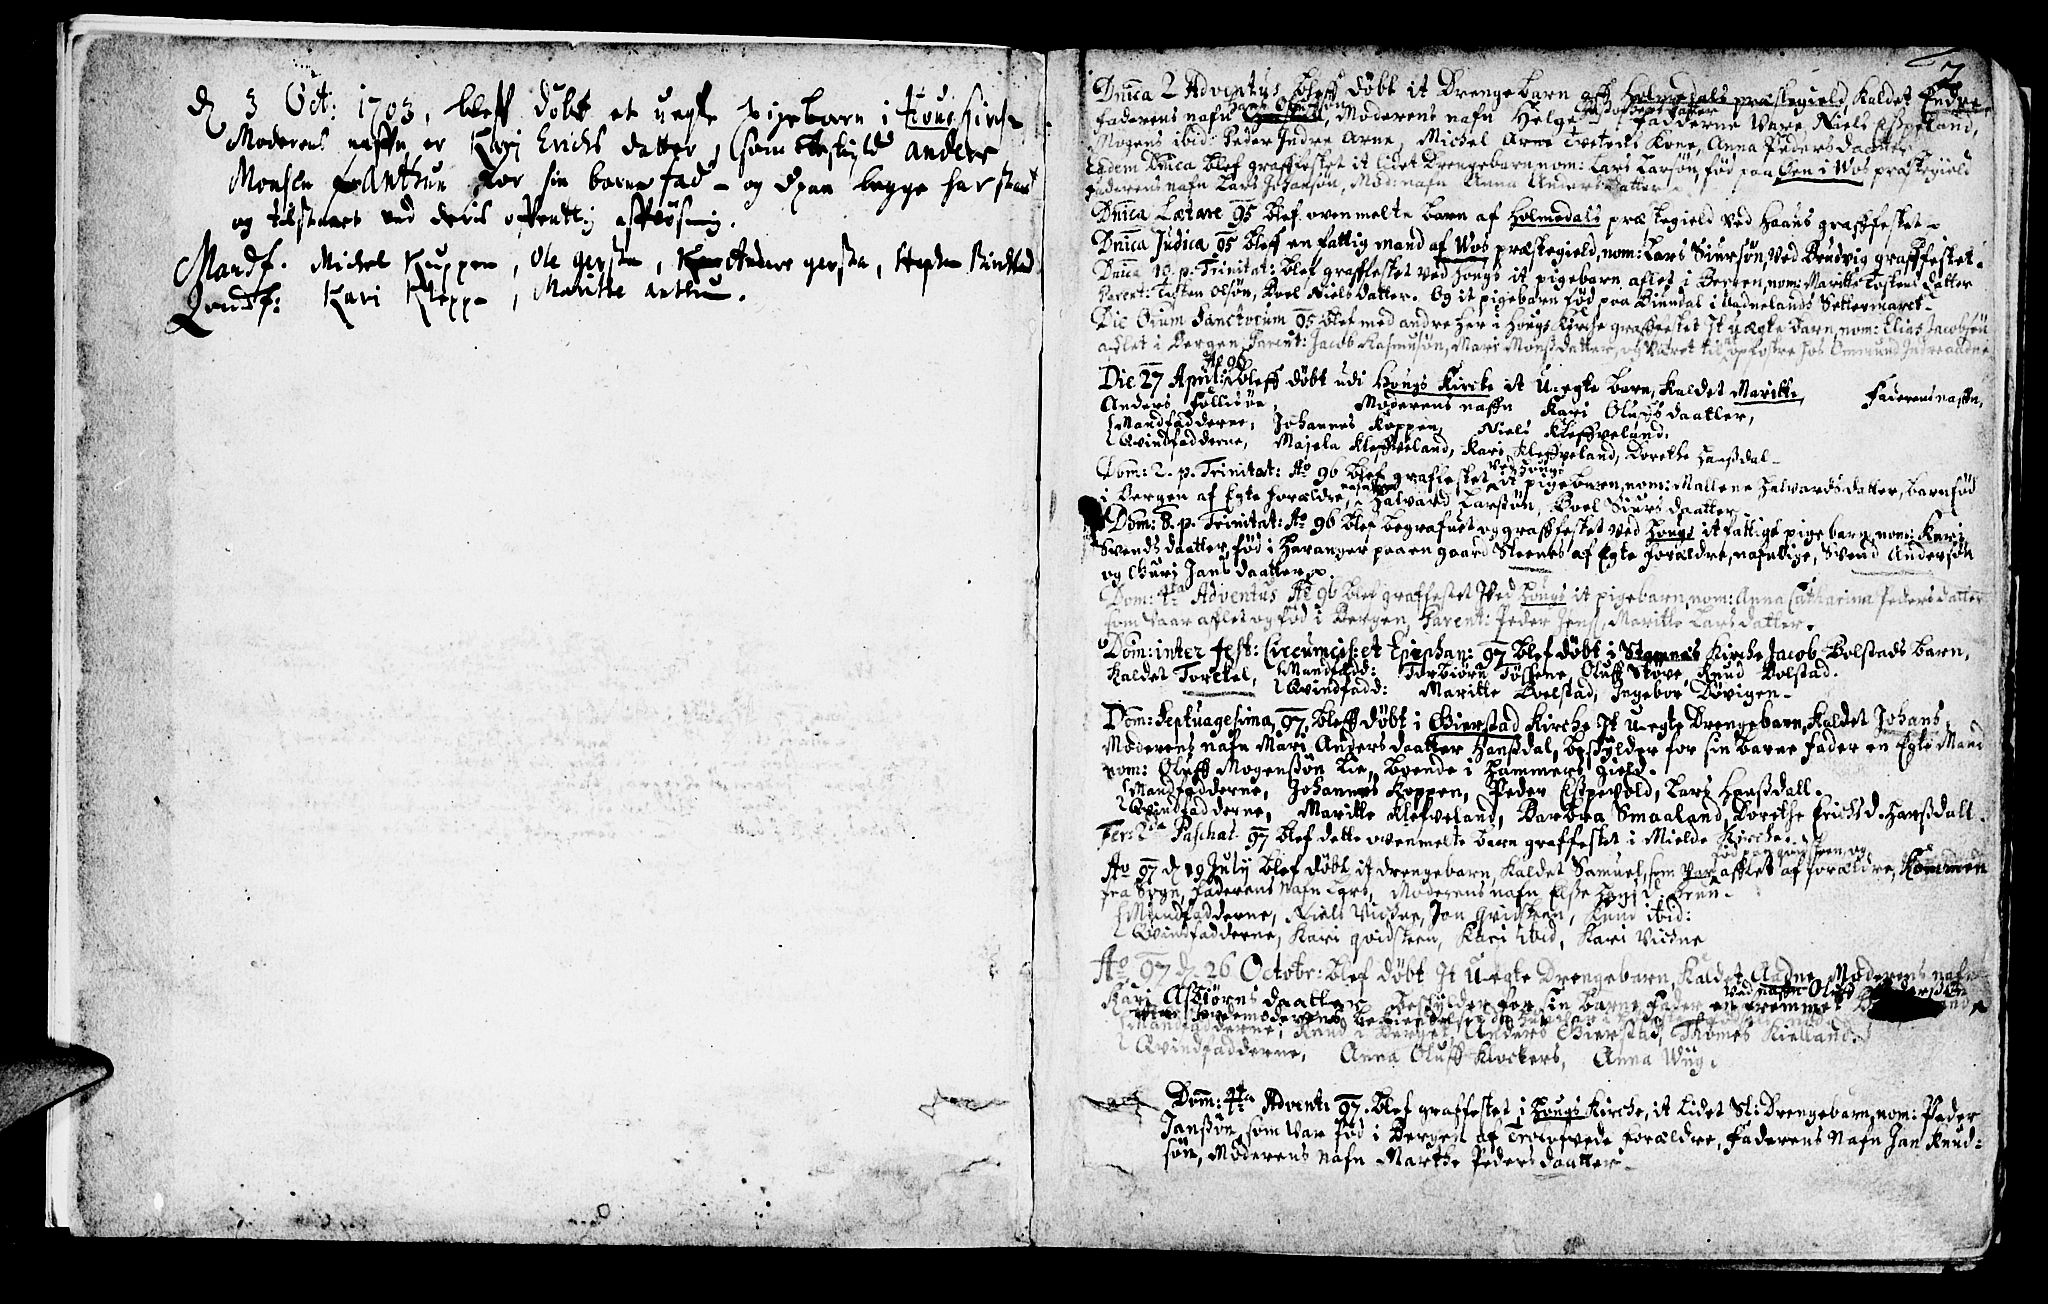 d 3 Oct: 1703, bleff döbt et uegte Pigebarn i Hous Kirche
Moderens naffn er Kari Erichs datter, som beskyld Anders
Monsen Anthun for sin barne fad - og
og tilstaaet ved deris offentlig
Mandf. Michel Kleppen, Ole gersta, Anders gersta,
Qvindf: Kari Kleppe, Maritte Anthun.
2
Dnica 2 Adventus bleff döbt it Drengebarn aff Holmedals præstegield, kaldet Endre
faderens nafn Hans Olufsön, Moderens nafn Helge fadderne vare Niels Espeland,
Mogens ibid: Peder Indre Arne, Michel Arne Tvetedts Kone, Anna Pedersdaatter
Eadem Dnica blef graffestet it lidet Drengebarn, nom: Lars Larsön, föd paa Öen i Wos præstegield
faderens nafn Lars Joharsön, Mod: nafn Anna Anders datter.
Dnica Lætare 95 blef ovenmelte barn af Holmedals præstegield ved Haaus graffestet.
Dnica Judica 95 bleff en fattig mand af Wos præstegield, nom: Lars Siursön, ved Bruvig graffestet.
Dnica 10. p. Trinitat: blef graffestet ved Hougs it pigebarn aflet i Bergen, nom: Maritte Tostens datter
Parent: Tosten Olsön, Boel Nielsdatter. Og it pigebarn föd paa Birindal i Settermaret
Die Oium Sanctorum 95 blef med andre her i Hougs Kirche graffestet It uægte barn, nom: Elias Jacobsön
aflet i Bergen, Parent: Jacob Rasmusön, Mari Monsdatter, og været til opfostre hos Omund Indreaadne
Ao 96
Die 27 April: bleff döbt udi Hougs Kirche it U-egte barn, kaldet Maritte, Faderens naffn,
Anders Follesöe, Moderens naffn Kari Olufs daatter,
Mandfadderne, Johannes Koppen, Niels Kleffveland,
Qvindfadderne, Majela Kleffveland, Kari Kleffveland, Dorethe Hansdal
Dom: 2. p. Trinitat: Ao 96 blef graffestet ved Hougs it pigebarn, nom: Mallene Halvardsdatter, barnföd
i Bergen af Egte forældre, Halvard Larsön, Boel Siursdaatter
Dom: 8. p. Trinitat: Ao 96 blef begrafuet og graffestet ved Hougs it fattige pigebarn, nom: Kari
Svendsdaatter, föd i Haranger paa en gaard Steenes af Egte forældre, nafnlige, Svend Andersön
og Guri Jans daatter.
Dom: 4ta Adventus Ao 96 blef graffestet Ved Hougs it pigebarn, nom: Anna Catharina Pedersdatter
som vaar aflet og föd i Bergen, Parent: Peder Jenss, Maritte Larsdatter.
Dom: inter fest: Circumcis: et Epiphan: 97 blef döbt i Stamnes Kirche Jacob Bolstads barn,
kaldet Torckel, Mandfadd: Torbiörn Tössene, Oluff Stöve, Knud Bolstad.
Qvindfadd: Maritte Boelstad, Ingebor Dövigen
Dom: Septuagesima, 97. bleff döbt i Gierstad Kirche It u-egte Drengebarn, kaldet Johans,
Moderens nafn Mari Andersdaatter Hansdal, beskylder for sin barne fader en Egte Mand
nom: Oluff Mogensön Lie, boende i Hammers gield.
Mandfadderne, Johannes Koppen, Peder Espevold, Lars Hansdall.
Qvindfadderne, Maritte Klefveland, Barbra Smaaland, Dorethe Erichs d. Hansdall.
Fer: 2da Paschat. 97 blef dette ovenmelte barn graffestet i Mielde Kirche.
Ao 97 d 19 July blef döbt it drengebarn, kaldet Samuel, som var afflet af forældre, Kommen
fra Sogn, faderens nafn Lars, Moderens nafn Else
Mandfadderne, Niels Vichne, Jon Qvidsteen, Knud ibid:
Qvindfadderne, Kari Qvidsteen, Kari ibid, Kari Vichne
Ao 97 d. 26 Octobr: blef döbt It U-egte Drengebarn, kaldet Aadne, Moderens nafn
Kari Asbiörns daatter, beskylder for sin barne fader en fremmet ved naffn Oluf
Mandfadderne, Knud i Berget, Anders Gierstad, Thomes Kielland.
Qvindfadderne, Anna Oluff Klockers, Anna Wiig.
Dom: 4ta Advent: 97. blef graffestet i Hougs Kirche, it lidet St: Drengebarn, nom: Peder
Jansön, som var föd i Bergen af Trolofvede forældre, Faderens Nafn Jan Knud-
sön, Moderens nafn Marthe Pedersdaatter